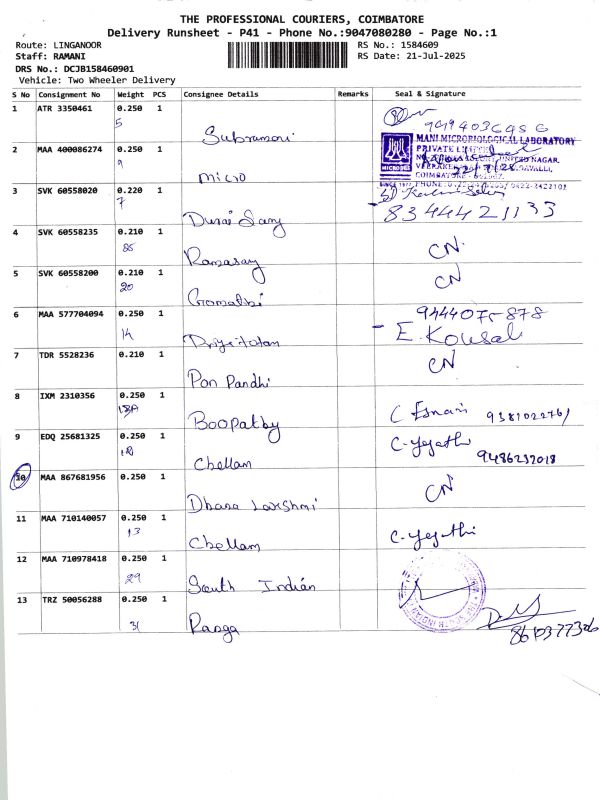 THE PROFESSIONAL COURIERS, COIMBATORE
Delivery Runsheet - P41 - Phone No.:9047080280 - Page No.:1
Route: LINGANOOR RS No.: 1584609
Staff: RAMANI RS Date: 21-Jul-2025
DRS No.: DCJB158460901
Vehicle: Two Wheeler Delivery
S No Consignment No Weight PCS Consignee Details Remarks Seal & Signature
1 ATR 3350461 0.250 1
5
Subramoni
2 MAA 400086274 0.250 1 MANI MICROBIOLOGICAL LABORATORY
PRIVATE LIMITED
9
Micro
COIMBATORE
3 SVK 60558020 0.220 1
7
Durai Samy 8344421133
4 SVK 60558235 0.210 1 CN
86
Ramasamy
5 SVK 60558200 0.210 1 CN
20
Gomathi
6 MAA 577704094 0.250 1 9444075878
14 E. Kousal
7 TDR 5528236 0.210 1 CN
Pon Pandhi
8 IXM 2310356 0.250 1
18A
Boopathy
9 EDQ 25681325 0.250 1
18 9486232018
Chellam
10 MAA 867681956 0.250 1 CN
Dhana Lakshmi
11 MAA 710140057 0.250 1
13
Chellam
12 MAA 710978418 0.250 1
29
South Indian
13 TRZ 50056288 0.250 1
31
Ranga